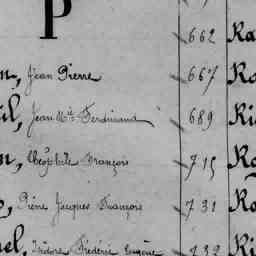 P
662 Ra
n, Jean Pierre 667 Ro
il, Jean M. Ferdinand 689 Ri
n, Théophile François 715 Ro
, Pierre Jacques François 731 Ro
el, Isidore Frédéric Eugène 732 Ri